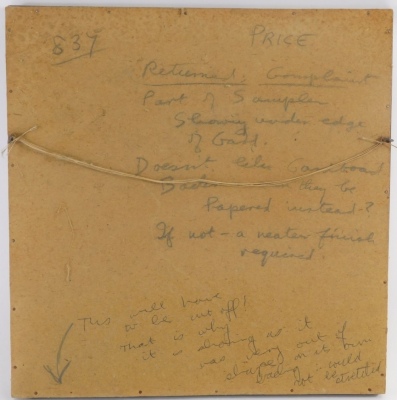 837
PRICE
Returned: Complaint
Part of Sampler
Showing under edge
of Card.
Doesn't like Cardboard
may be
Papered instead-?
If not - a neater finish
required.
This will have
to be cut off!
That is why
it is showing as it
was very out of
shape on it
could
not be stretched